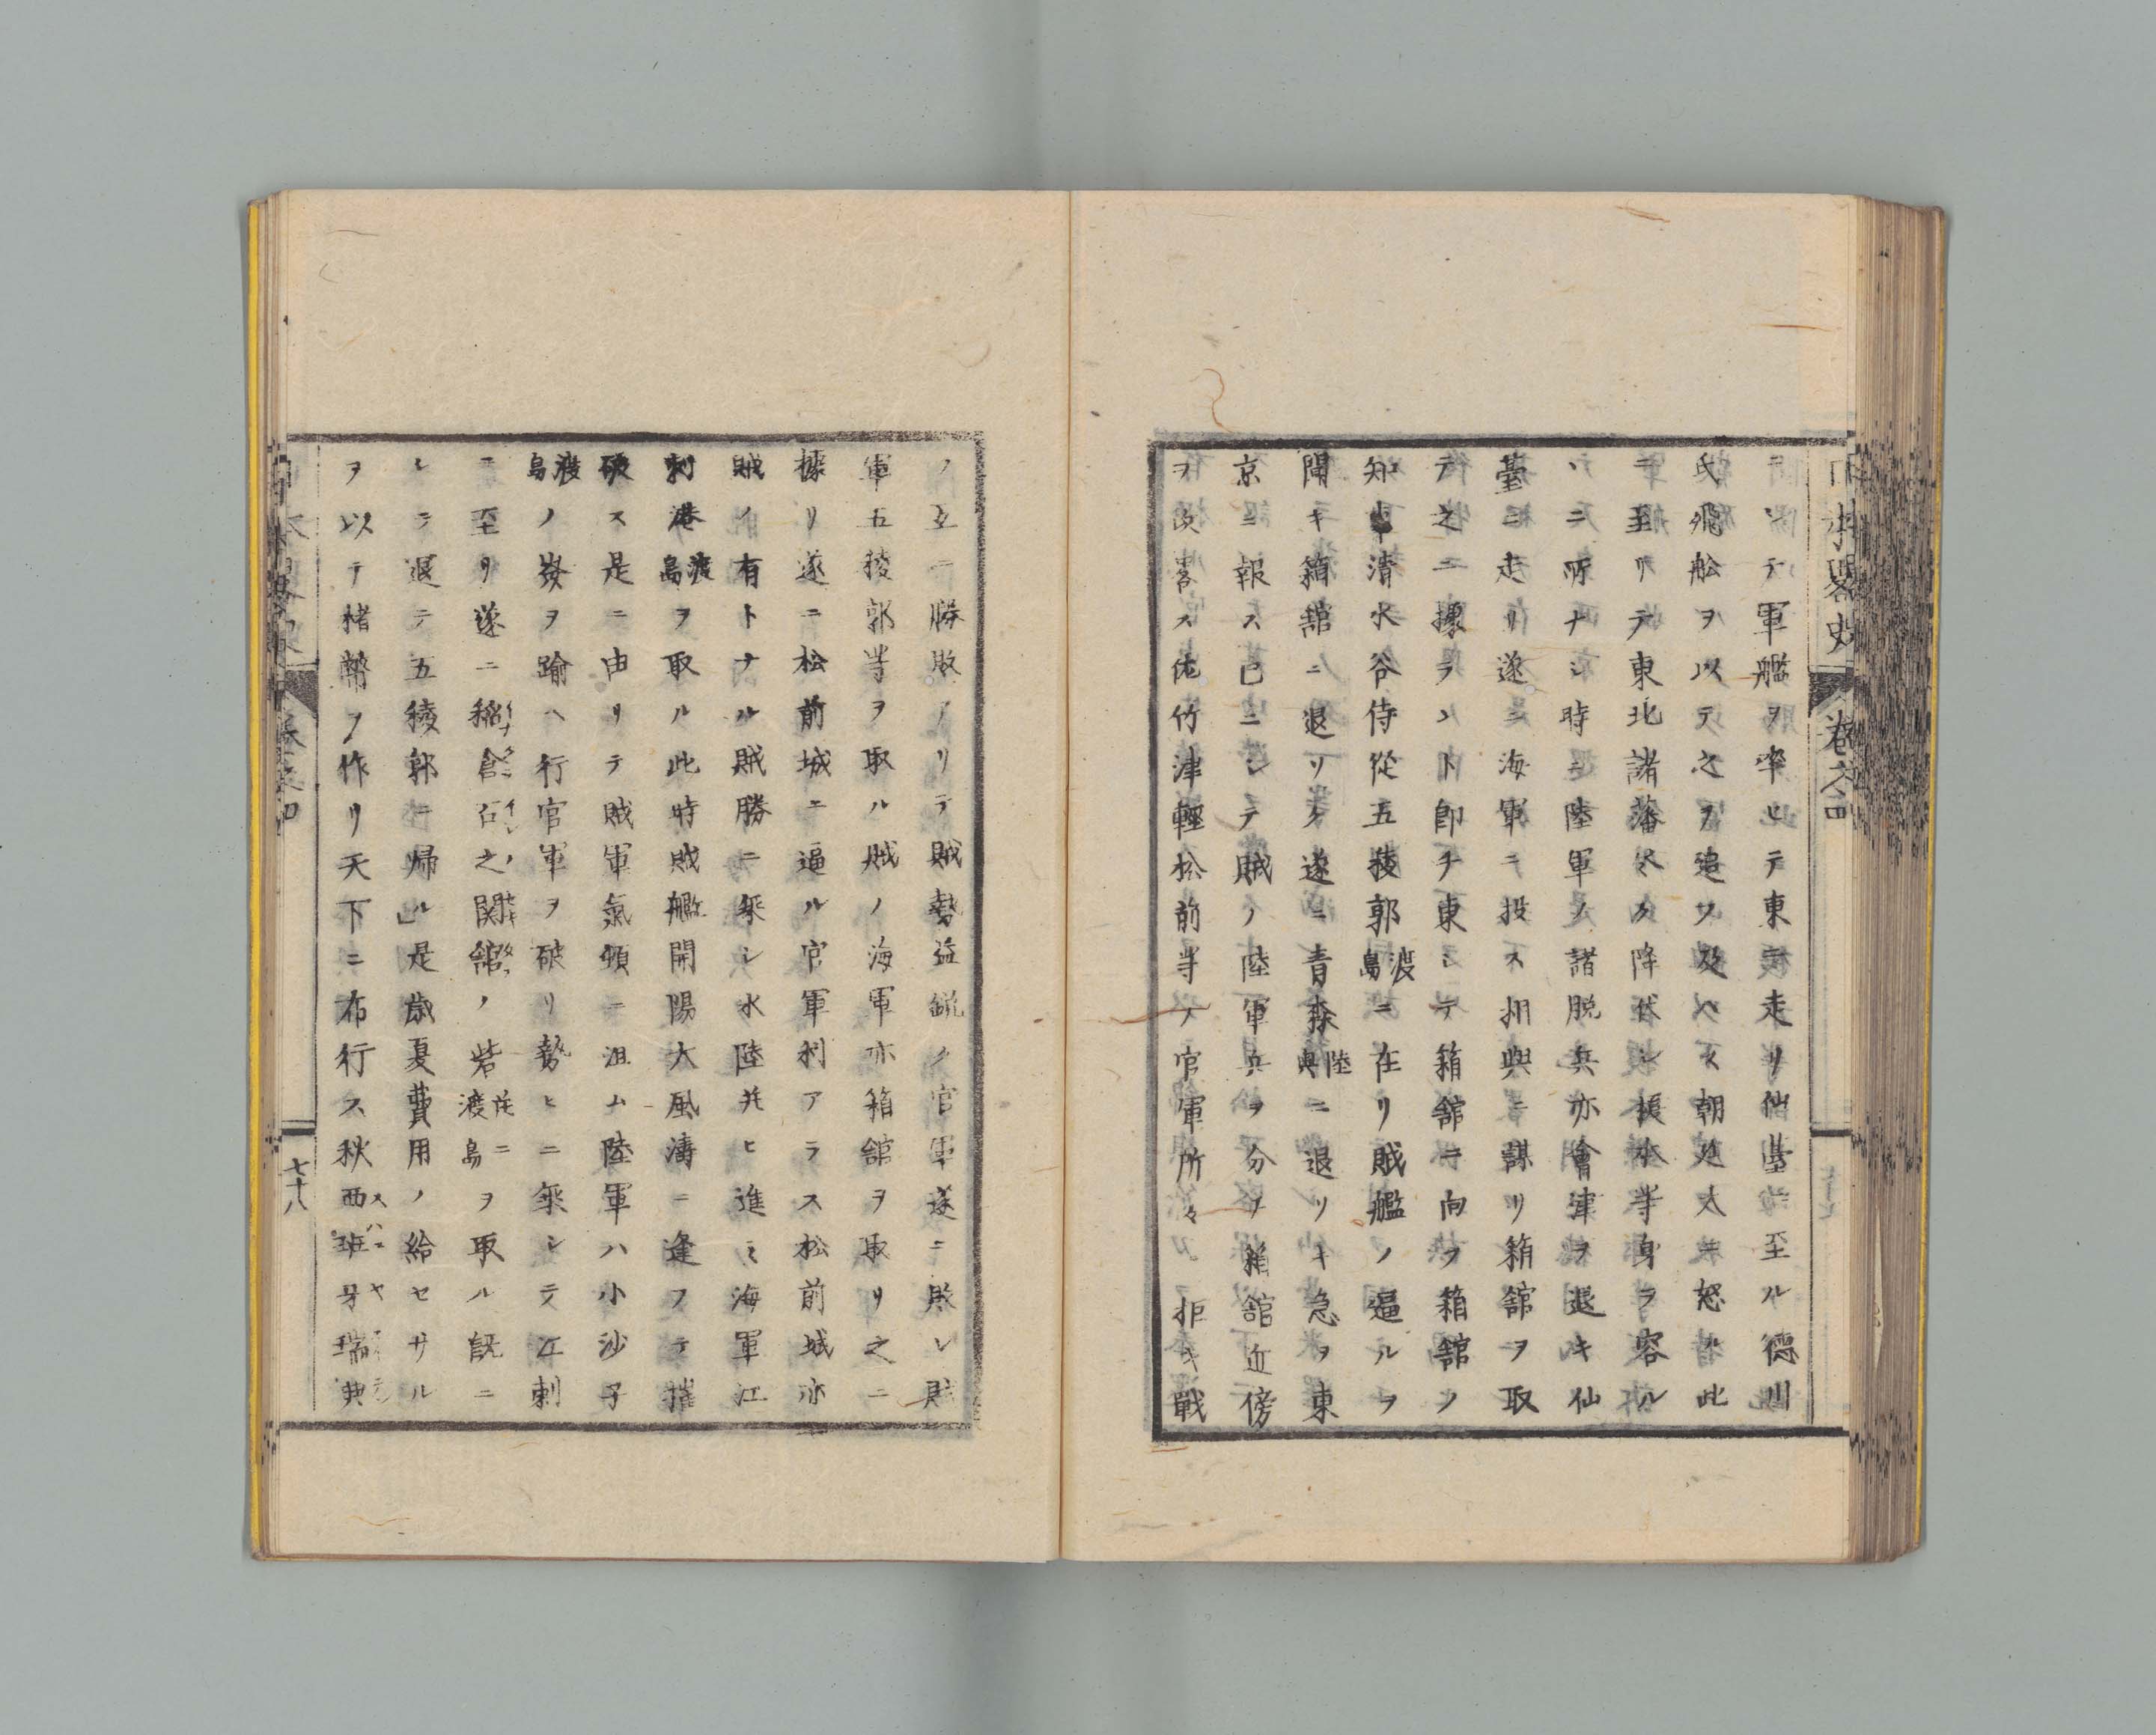 日本畧史 卷之四
テ軍艦ヲ率ヒテ東ニ走リ仙臺ニ至ル德川
氏飛舩ヲ以テ之ヲ追ヒ及ハス朝廷大ニ怒ル此
ニ至リテ東北諸藩尽ク降伏シ榎本等身ヲ容ル
ニ所ナシ時ニ陸軍ノ諸脱兵亦會津ヲ退キ仙
臺ニ走リ遂ニ海軍ニ投ス相與ニ謀リ箱舘ヲ取
テ之ニ據ラント卽チ東シテ箱舘ニ向フ箱舘ノ
知事清水谷侍從五稜郭渡島ニ在リ賊艦ノ逼ルヲ
聞キ箱舘ニ退リ遂ニ青森陸奥ニ退リキ急ヲ東
京ニ報ス已ニシテ賊ノ陸軍兵ヲ分ヲ箱舘近傍
ヲ攻畧ス佐竹津輕松前等ノ官軍所々拒キ戰
ノ互ニ勝敗アリテ賊勢益鋭ク官軍遂ニ敗レ賊
軍五稜郭等ヲ取ル賊ノ海軍亦箱舘ヲ取リ之ニ
據リ遂ニ松前城ニ逼ル官軍利アラス松前城亦
賊ノ有トナル賊勝ニ乘シ水陸共ヒ進ミ海軍江
刺港渡島ヲ取ル此時賊艦開陽大風濤ニ逢フテ摧
破ス是ニ由リテ賊軍氣頓ニ沮ム陸軍ハ小沙子
渡島ノ嶮ヲ踰ヘ行官軍ヲ破リ勢ヒニ乘シテ江刺
ニ至リ遂ニ稲倉石之関舘ノ砦渡島ニ在ヲ取ル既ニ
シテ退テ五稜郭ニ帰ル」是歳夏費用ノ給セサル
ヲ以テ楮幣ヲ作リ天下ニ布行ス秋西班牙瑞典
七十八